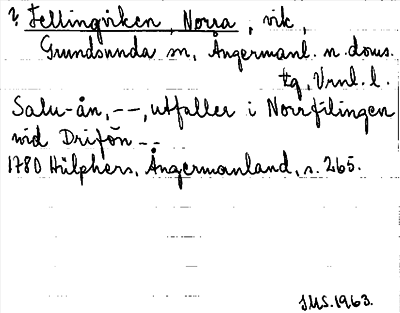 ? Fellingviken, Norra, vik,
Grundsunda sn, Ångermanl. n. doms.
tg, Vrnl. l.
Salu-ån, --, utfaller i Norrfilingen
wid Drifön --
1780 Hülphers, Ångermanland, s. 265.
JMS. 1963.